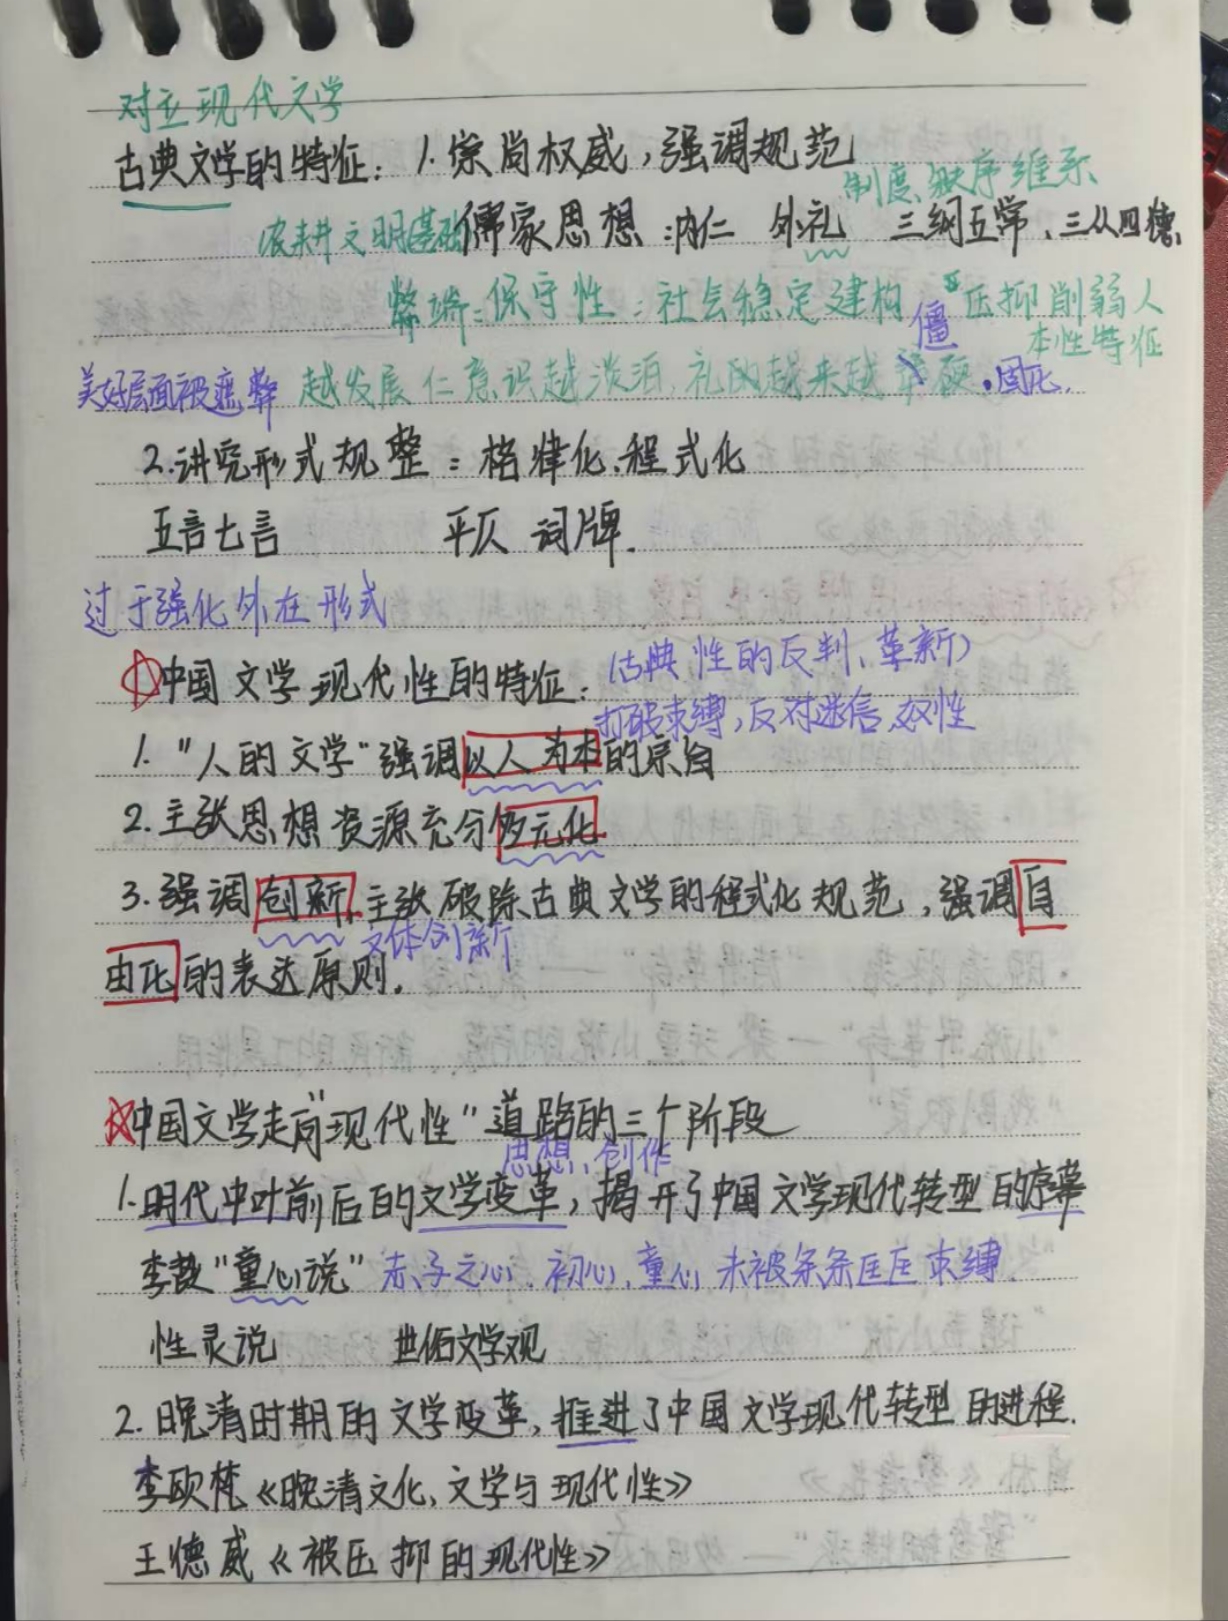 对立现代文学
古典文学的特征：1.崇尚权威，强调规范
制度、秩序维系
农耕文明基础 儒家思想：内仁 外礼 三纲五常、三从四德
弊端：保守性：社会稳定建构 压抑削弱人
本性特征
僵
美好层面被遮蔽 越发展仁意识越淡泊，礼的越来越硬。固化.
2.讲究形式规整：格律化、程式化
五言七言 平仄 词牌.
过于强化外在形式
中国文学现代性的特征：（古典性的反判、革新）
打破束缚，反对迷信，奴性
1."人的文学"强调以人为本的原自
2.主张思想资源充分的多元化
3.强调创新，主张破除古典文学的程式化规范，强调自
文体创新
由化的表达原则.
☆中国文学走向"现代性"道路的三个阶段
思想、创作
1.明代中叶前后的文学变革，揭开了中国文学现代转型的序幕
李贽"童心说"赤子之心、初心、童心 未被条条框框束缚
性灵说 世俗文学观
2.晚清时期的文学变革，推进了中国文学现代转型的进程.
李欧梵《晚清文化、文学与现代性》
王德威《被压抑的现代性》